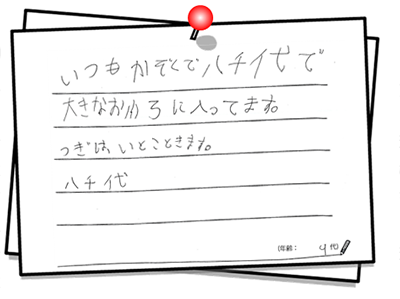 いつもかぞくでハチイ代で
大きなおふろに入ってます。
つぎは、いとこときます。
ハチイ代
(年齢： 4代)